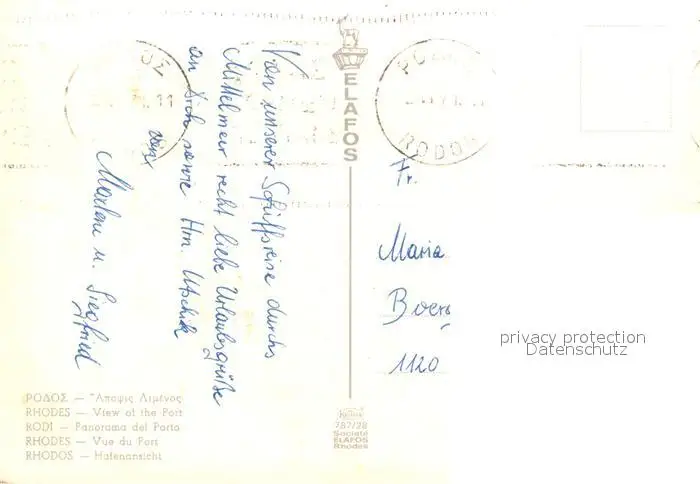 Von unserer Schiffsreise durchs
Mittelmeer recht liebe Urlaubsgrüße
an Dich sowie Hrn. Utschik
von
Marlene u. Siegfried
ELAFOS
RODOS
Fr.
Maria
1120
privacy protection
Datenschutz
ΡΟΔΟΣ — Ἄποψις Λιμένος
RHODES — View of the Port
RODI — Panorama del Porto
RHODES — Vue du Port
RHODOS — Hafenansicht
787/28
Société
ELAFOS
Rhodes